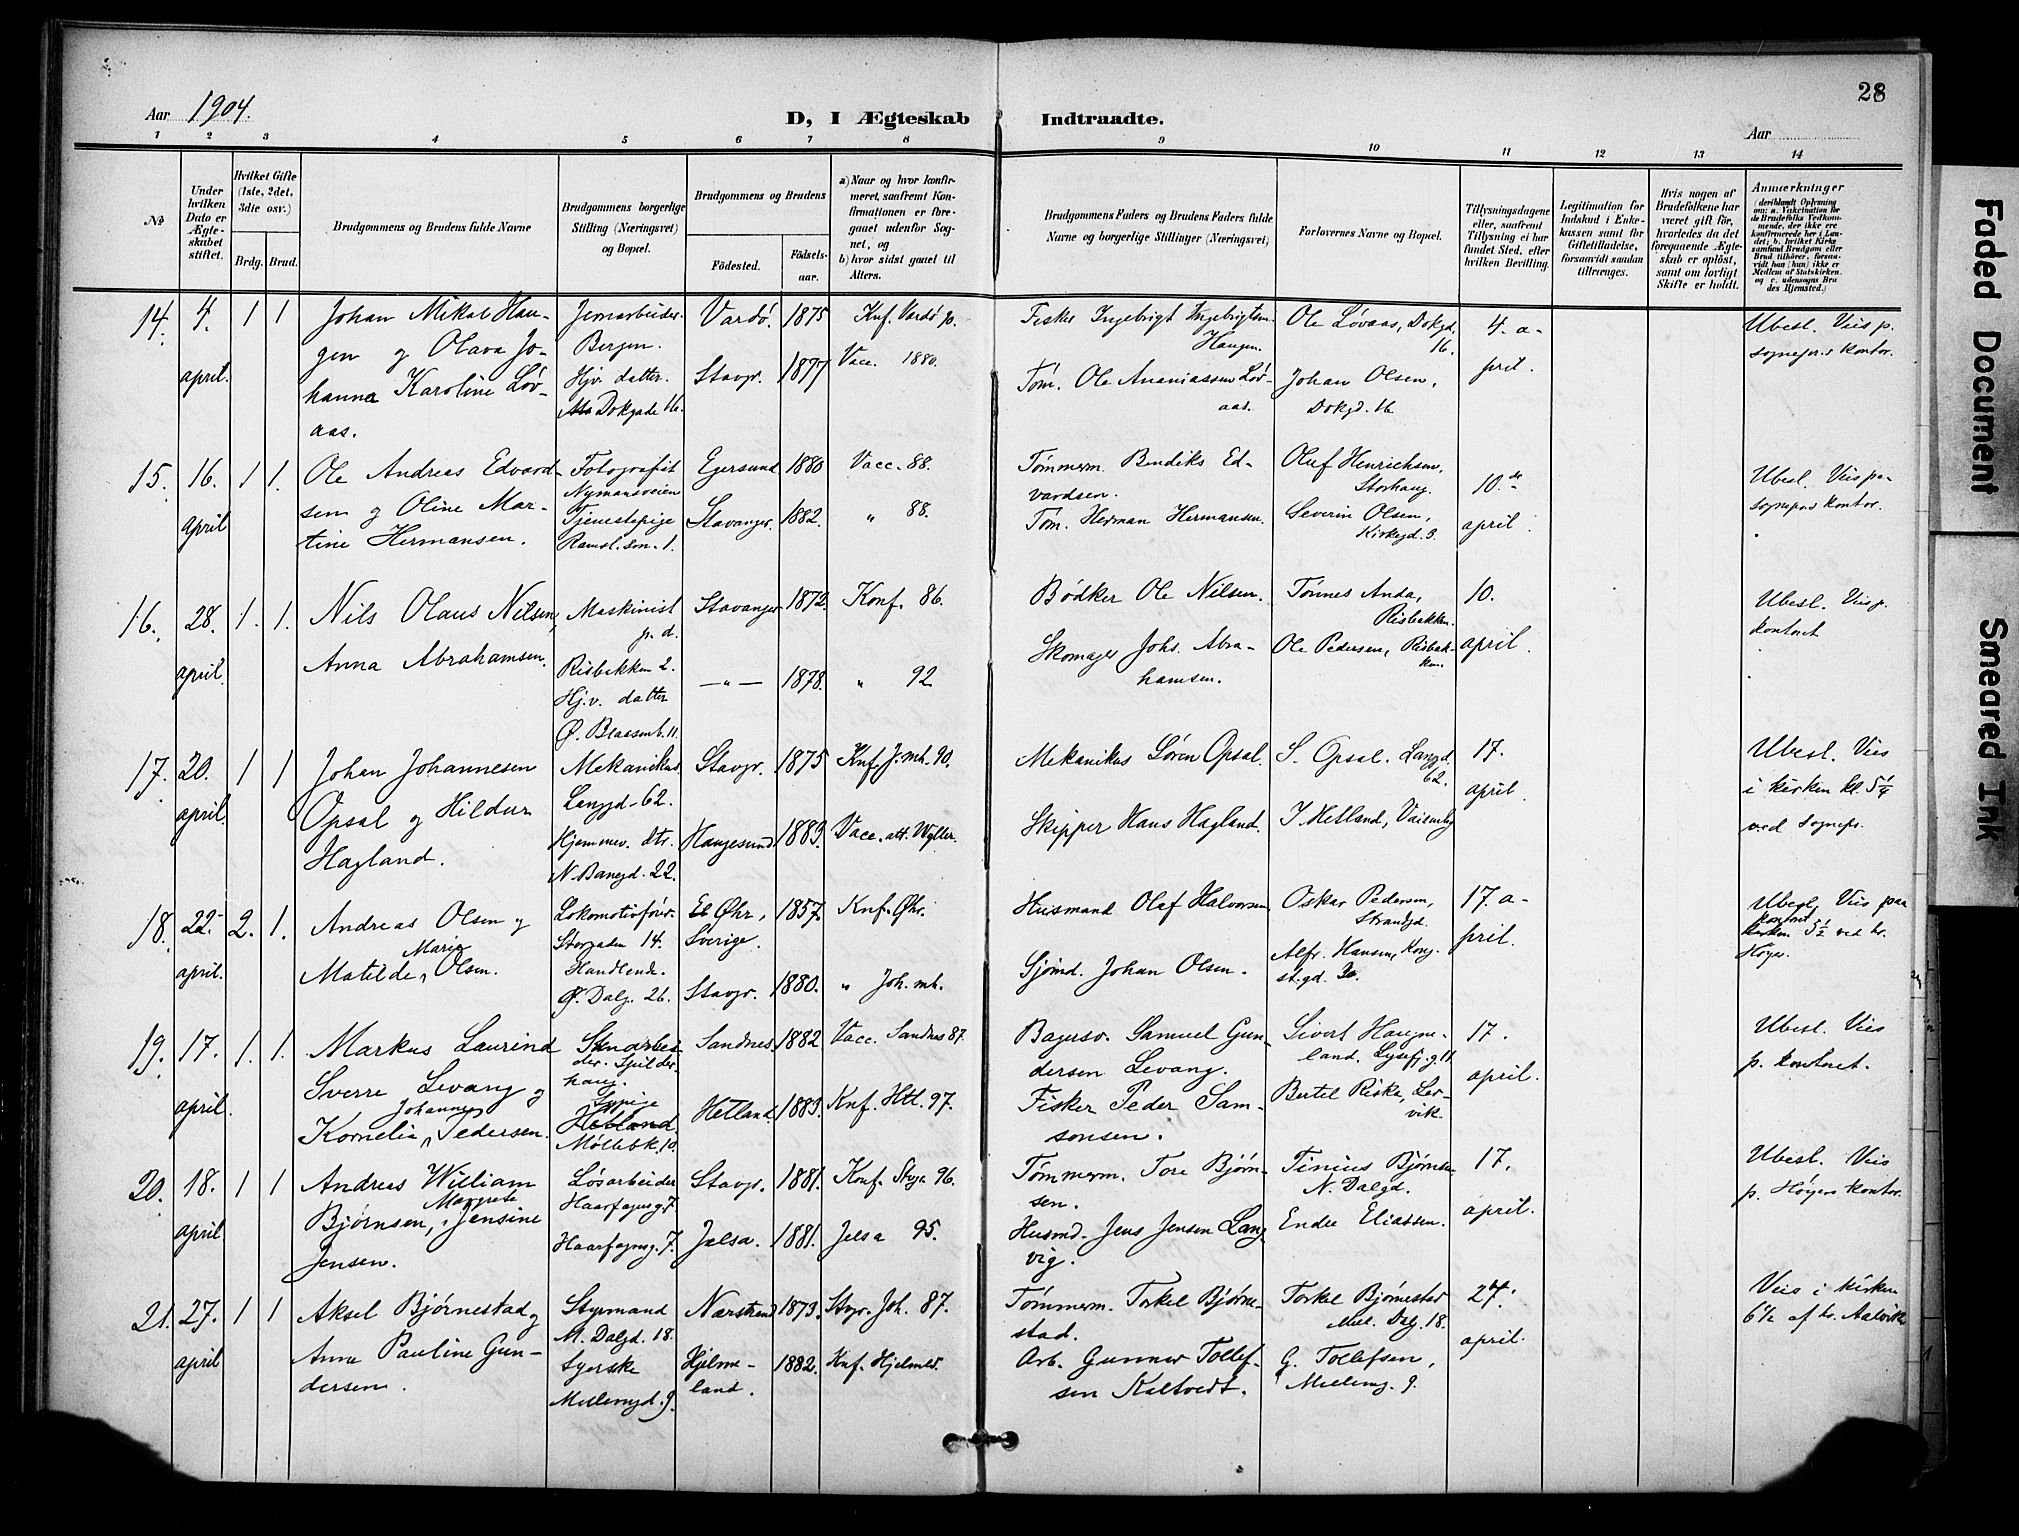 28
Aar 1904.
D, I Ægteskab Indtraadte.
Aar
1 2 3 4 5 6 7 8 9 10 11 12 13 14
No
Under hvilken Dato er Ægteskabet stiftet.
Hvilket Gifte (1ste, 2det, 3die osv.)
Brdg. Brud.
Brudgommens og Brudens fulde Navne
Brudgommens borgerlige Stilling (Næringsvei) og Bopæl.
Brudgommens og Brudens
Födested.
Födselsaar.
a) Naar og hvor konfirmeret, saafremt Konfirmationen er foregaaet udenfor Sognet, og
b) hvor sidst gaaet til Alters.
Brudgommens Faders og Brudens Faders fulde Navne og borgerlige Stillinger (Næringsvei)
Forlovernes Navne og Bopæl.
Tillysningsdagene eller, saafremt Tillysning ei har fundet Sted, efter hvilken Bevilling.
Legitimation for Indskud i Enkekassen samt for Giftetilladelse, forsaavidt saadan tiltrænges.
Hvis nogen af Brudefolkene har været gift før, hvorledes da det foregaaende Ægteskab er oplöst, samt om lovligt Skifte er holdt.
Anmerkninger
(deriblandt Oplysning om: a. Vakcination for de Brudefolks Vedkommende, der ikke ere konfirmerede her i Landet; b. hvilket Kirkesamfund Brudgom eller Brud tilhører, forsaavidt han (hun) ikke er Medlem af Statskirken, og c. udensogns Brudes Hjemsted.)
14. 4. april. 1 1
Johan Mikal Haugen og Olava Johanna Karoline Lövaas.
Jernarbeider Bergen.
Hjv. datter. Dokgade 16.
Vardö. 1875
Stavgr. 1877
Knf. Vardö 90.
Vacc. 1880.
Fisker Ingebrigt Ingebrigtsen Haugen.
Töm. Ole Ananiassen Lövaas.
Ole Lövaas, Dokgd. 16.
Johan Olsen, Dokgd. 16
4. april.
Ubesl. Viis p. sognepr.s kontor.
15. 16. april 1 1.
Ole Andreas Edvardsen og Oline Martine Hermansen.
Fotograf
Nymansveien
Tjenestepige
Egersund 1880
Stavanger. 1882.
Vacc. 88.
" 88.
Tömmerm. Bendiks Edvardsen.
Töm. Herman Hermansen.
Oluf Henrichsen, Storhaug.
Severin Olsen, Kirkegd. 3.
10de april.
Ubesl. Viis paa sogneprs kontor.
16. 28. april. 1. 1.
Nils Olaus Nilsen,
Anna Abrahamsen.
Maskinist p. d.
Risbakken 2.
Hj.v. datter
Ø. Blaasenb. 11.
Stavanger 1872.
—"— 1878.
Konf. 86.
" 92
Bödker Ole Nilsen.
Skomager Johs. Abrahamsen.
Tönnes Anda, Risbakken.
Ole Pedersen, Risbakken.
10. april.
Ubesl. Viis p. kontoret
17. 20. april. 1 1
Johan Johannesen Opsal og Hildur Hagland.
Mekanikus,
Langgd. 62.
Hjemmev. dtr.
N. Bangd. 22.
Stavgr. 1875
Haugesund 1883.
Knf. J.mh. 90.
Vacc. att. Wyller.
Mekanikus Sören Opsal.
Skipper Hans Hagland.
S. Opsal. Langgd. 62.
J. Hetland,
17. april.
Ubesl. Viis i kirken kl. 5¼ ved sognepr.
18. 22. april. 2. 1.
Andreas Olsen og Matilde Marie Olsen.
Lokomotivförer
Storgaden 14.
Handlende.
Ø. Dalg. 26.
Øhr, Sverige. 1857.
Stavgr. 1880.
Knf. Øhr.
" Joh. mh.
Husmand Olaf Halvorsen,
Sjömd. Johan Olsen.
Oskar Pedersen, Strandgd.
Alfr. Hansen, Kongst.gd. 30.
17. april.
Ubesl. Viis paa kontoret 5½ ved hr. Höyer.
19. 17. april. 1. 1.
Markus Laurind Sverre Levang og Kornelia Johanne Pedersen.
Hetland.
Möllebk. 10.
Sandnes. 1882
Hetland. 1883.
Vacc. Sandnes 87.
Knf. Htl. 97.
Bagersv. Samuel Gundersen Levang.
Fisker Peder Samsonsen.
Sivert Haugneland. Lysefj.g. 11
Bertel Riska, Lervik.
17. april.
Ubesl. Viis p. kontoret.
20. 18. april 1 1
Andreas William Björnsen, Jensine Margrete Jensen.
Lösarbeider
Haarfagrsg. 7
Haarfagrsg. 7.
Stavgr. 1881.
Jelsa. 1881.
Konf. Stvgr. 96.
Jelsa 95.
Tömmerm. Tore Björnsen.
Husmd. Jens Jensen Langvig.
Tinius Björnsen N. Dalgd.
Endre Eliassen.
17. april.
Ubesl. Viis p. Höyers kontor.
21. 27. april 1 1
Aksel Björnestad og Anna Pauline Gundersen.
Styrmand
M. Dalgd. 18.
Syerske
Mellemgd. 9.
Nærstrand 1873.
Hjelmeland. 1882.
Stvgr. Joh. 87.
Knf. Hjelmel.
Tömmerm. Torkel Björnestad.
Arb. Gunner Tollefsen Kaltvedt.
Torkel Björnestad Mel. Dalg. 18.
G. Tollefsen, Mellemg. 9.
24. april.
Viis i kirken 6½ af hr. Aalvik
Faded Document
Smeared Ink